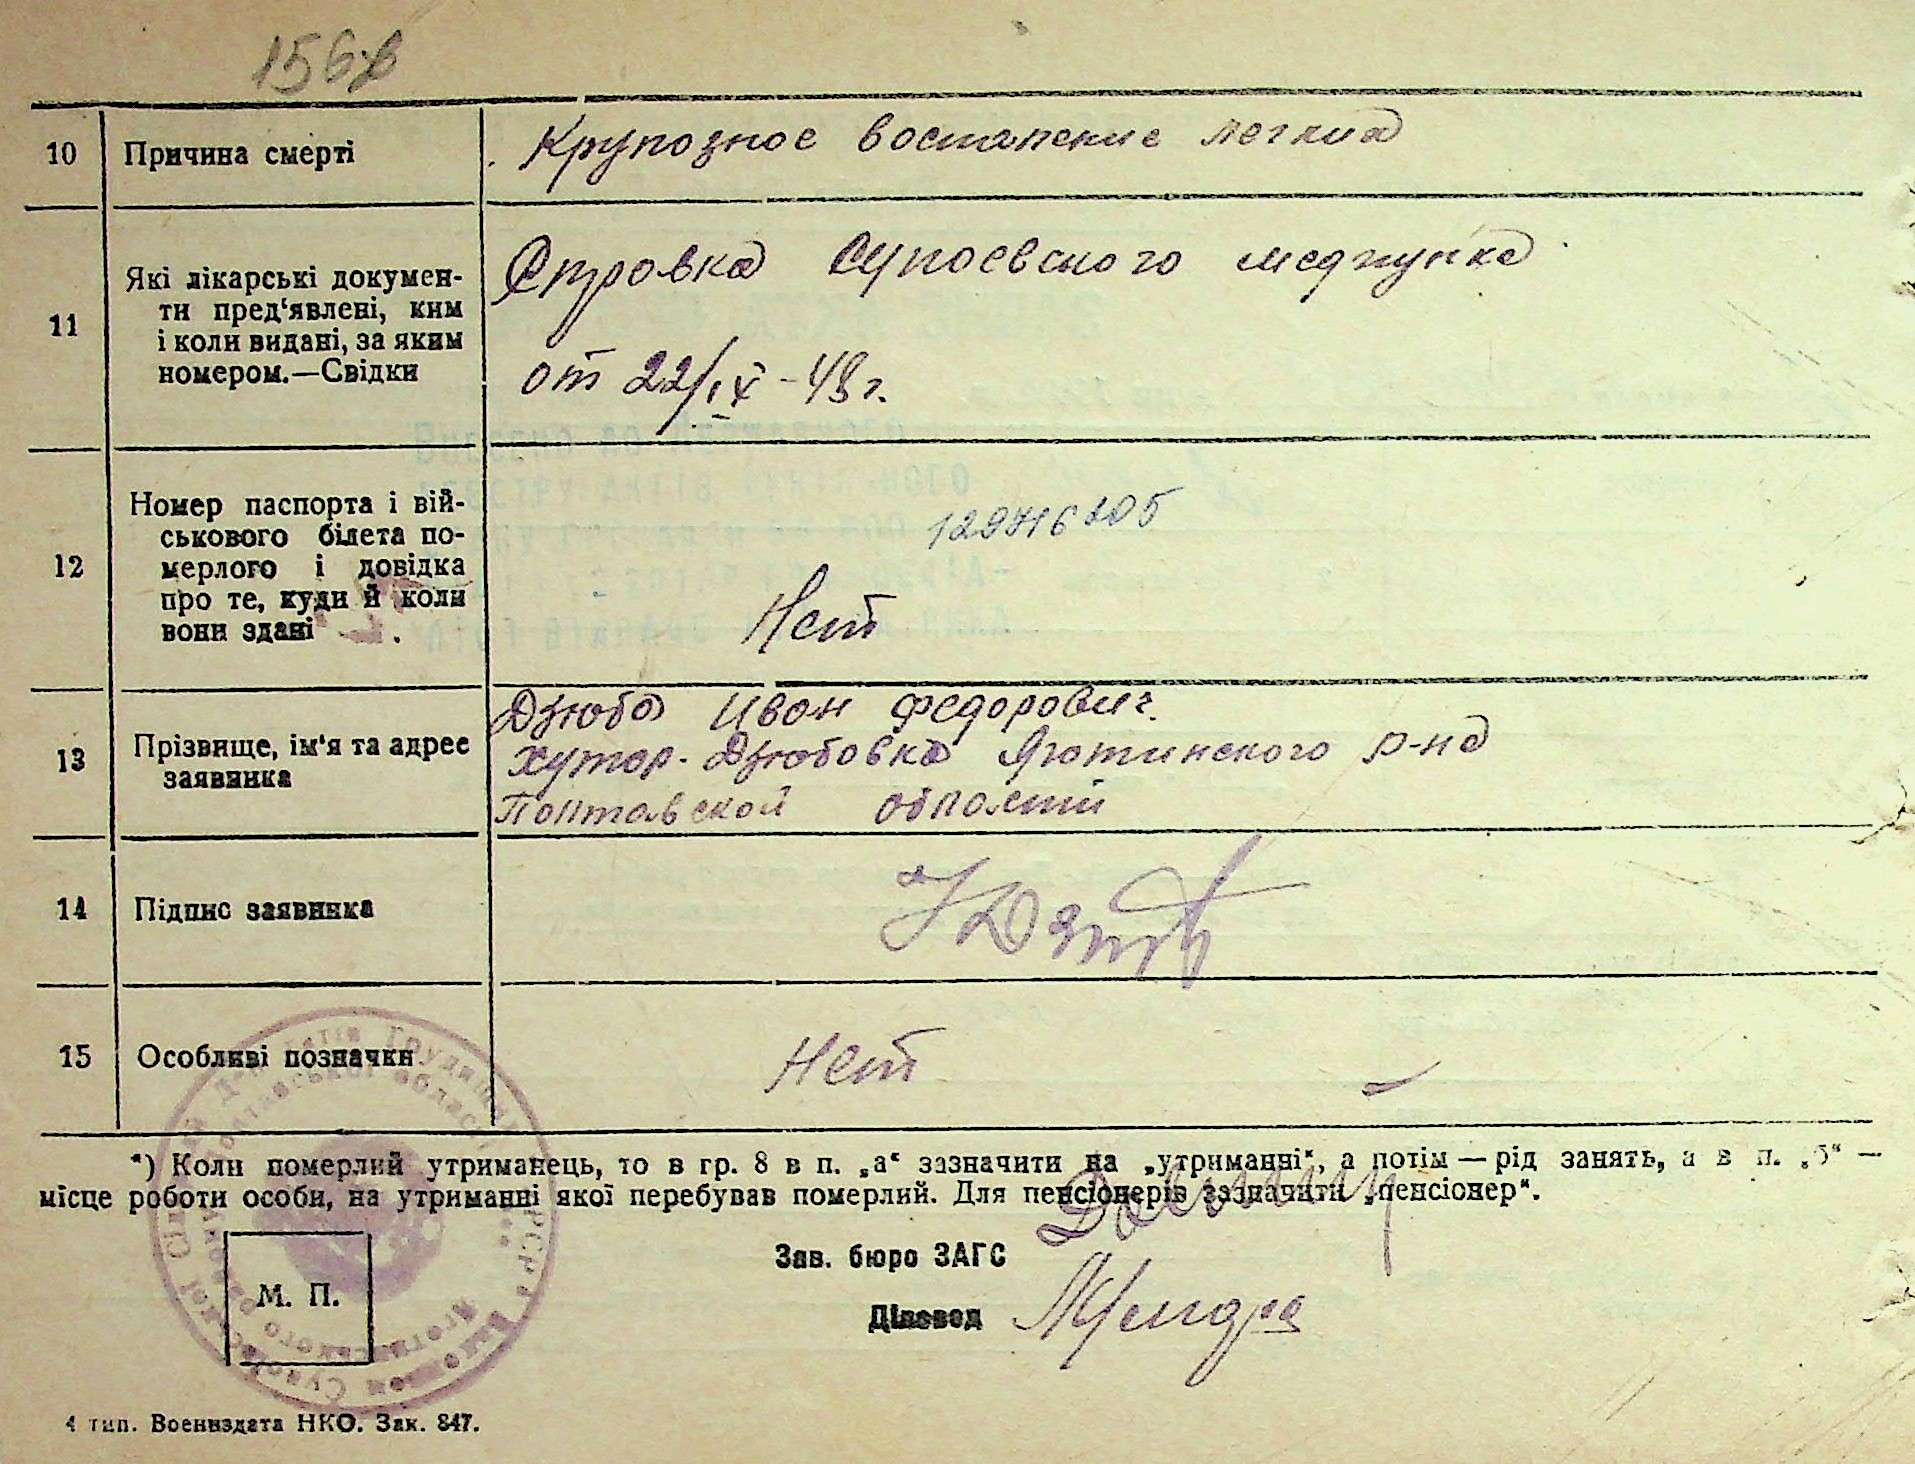 10 Причина смерті
Крупозное воспаление легких
11 Які лікарські докумен-
ти пред‘явлені, ким
і коли видані, за яким
номером.—Свідки
Справка Супоевского медпункта
от 22/IX -43 г.
12 Номер паспорта і вій-
ськового білета по-
мерлого і довідка
про те, куди й коли
вони здані
Нет
13 Прізвище, ім‘я та адрес
заявника
Дзюба Иван Федорович.
хутор. Дзюбовка Яготинского р-на
Полтавской области
14 Підпис заявника
15 Особливі позначки
Нет
*) Коли померлий утриманець, то в гр. 8 в п. „а“ зазначити на „утриманні“, а потім — рід занять, а в п. „б“ —
місце роботи особи, на утриманні якої перебував померлий. Для пенсіонерів зазначити „пенсіонер“.
Зав. бюро ЗАГС
М. П.
Діловод
4 тип. Воениздата НКО. Зак. 847.